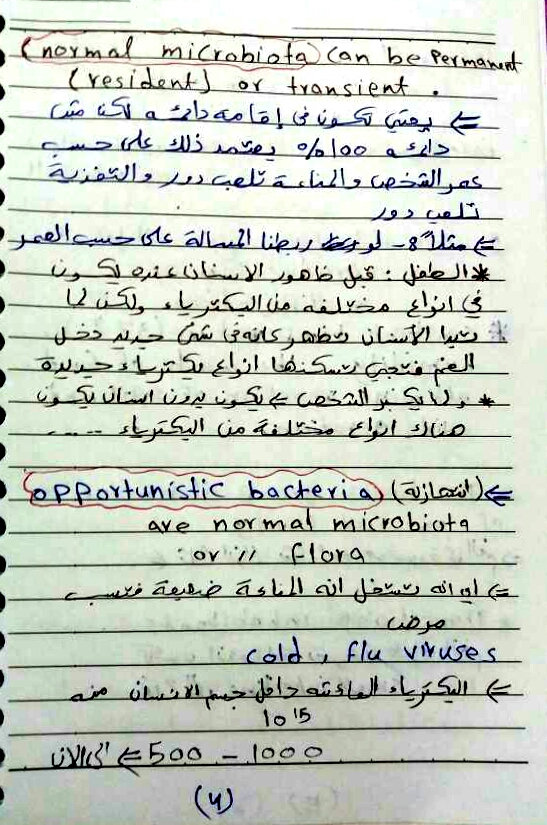 (normal microbiota) can be permanent
(resident) or transient.
⇐ يعني تكون في إقامة دائمة لكن مش
دائمه 100% يعتمد ذلك على حسب
عمر الشخص والمناعة تلعب دور والتغذية
تلعب دور
⇐ مثلاً :- لو ربطنا المسالة على حسب العمر
* الطفل : قبل ظهور الاسنان عنده تكون
في انواع مختلفه من البكترياء ولكن لما
تبدا الأسنان تظهر كانه في شئ جديد دخل
الفم فتجي تسكنها انواع بكترياء جديدة
* ولما يكبر الشخص ⇐ يكون بدون اسنان يكون
هناك انواع مختلفة من البكترياء .....
⇐ (انتهازية) opportunistic bacteria
are normal microbiota
or // flora
⇐ اي انه تستغل انه المناعة ضعيفة فتسبب
مرض
cold, flu viruses
⇐ البكترياء العائشه داخل جسم الانسان منه
10¹⁵
500 – 1000 ⇐ الى الان
(4)